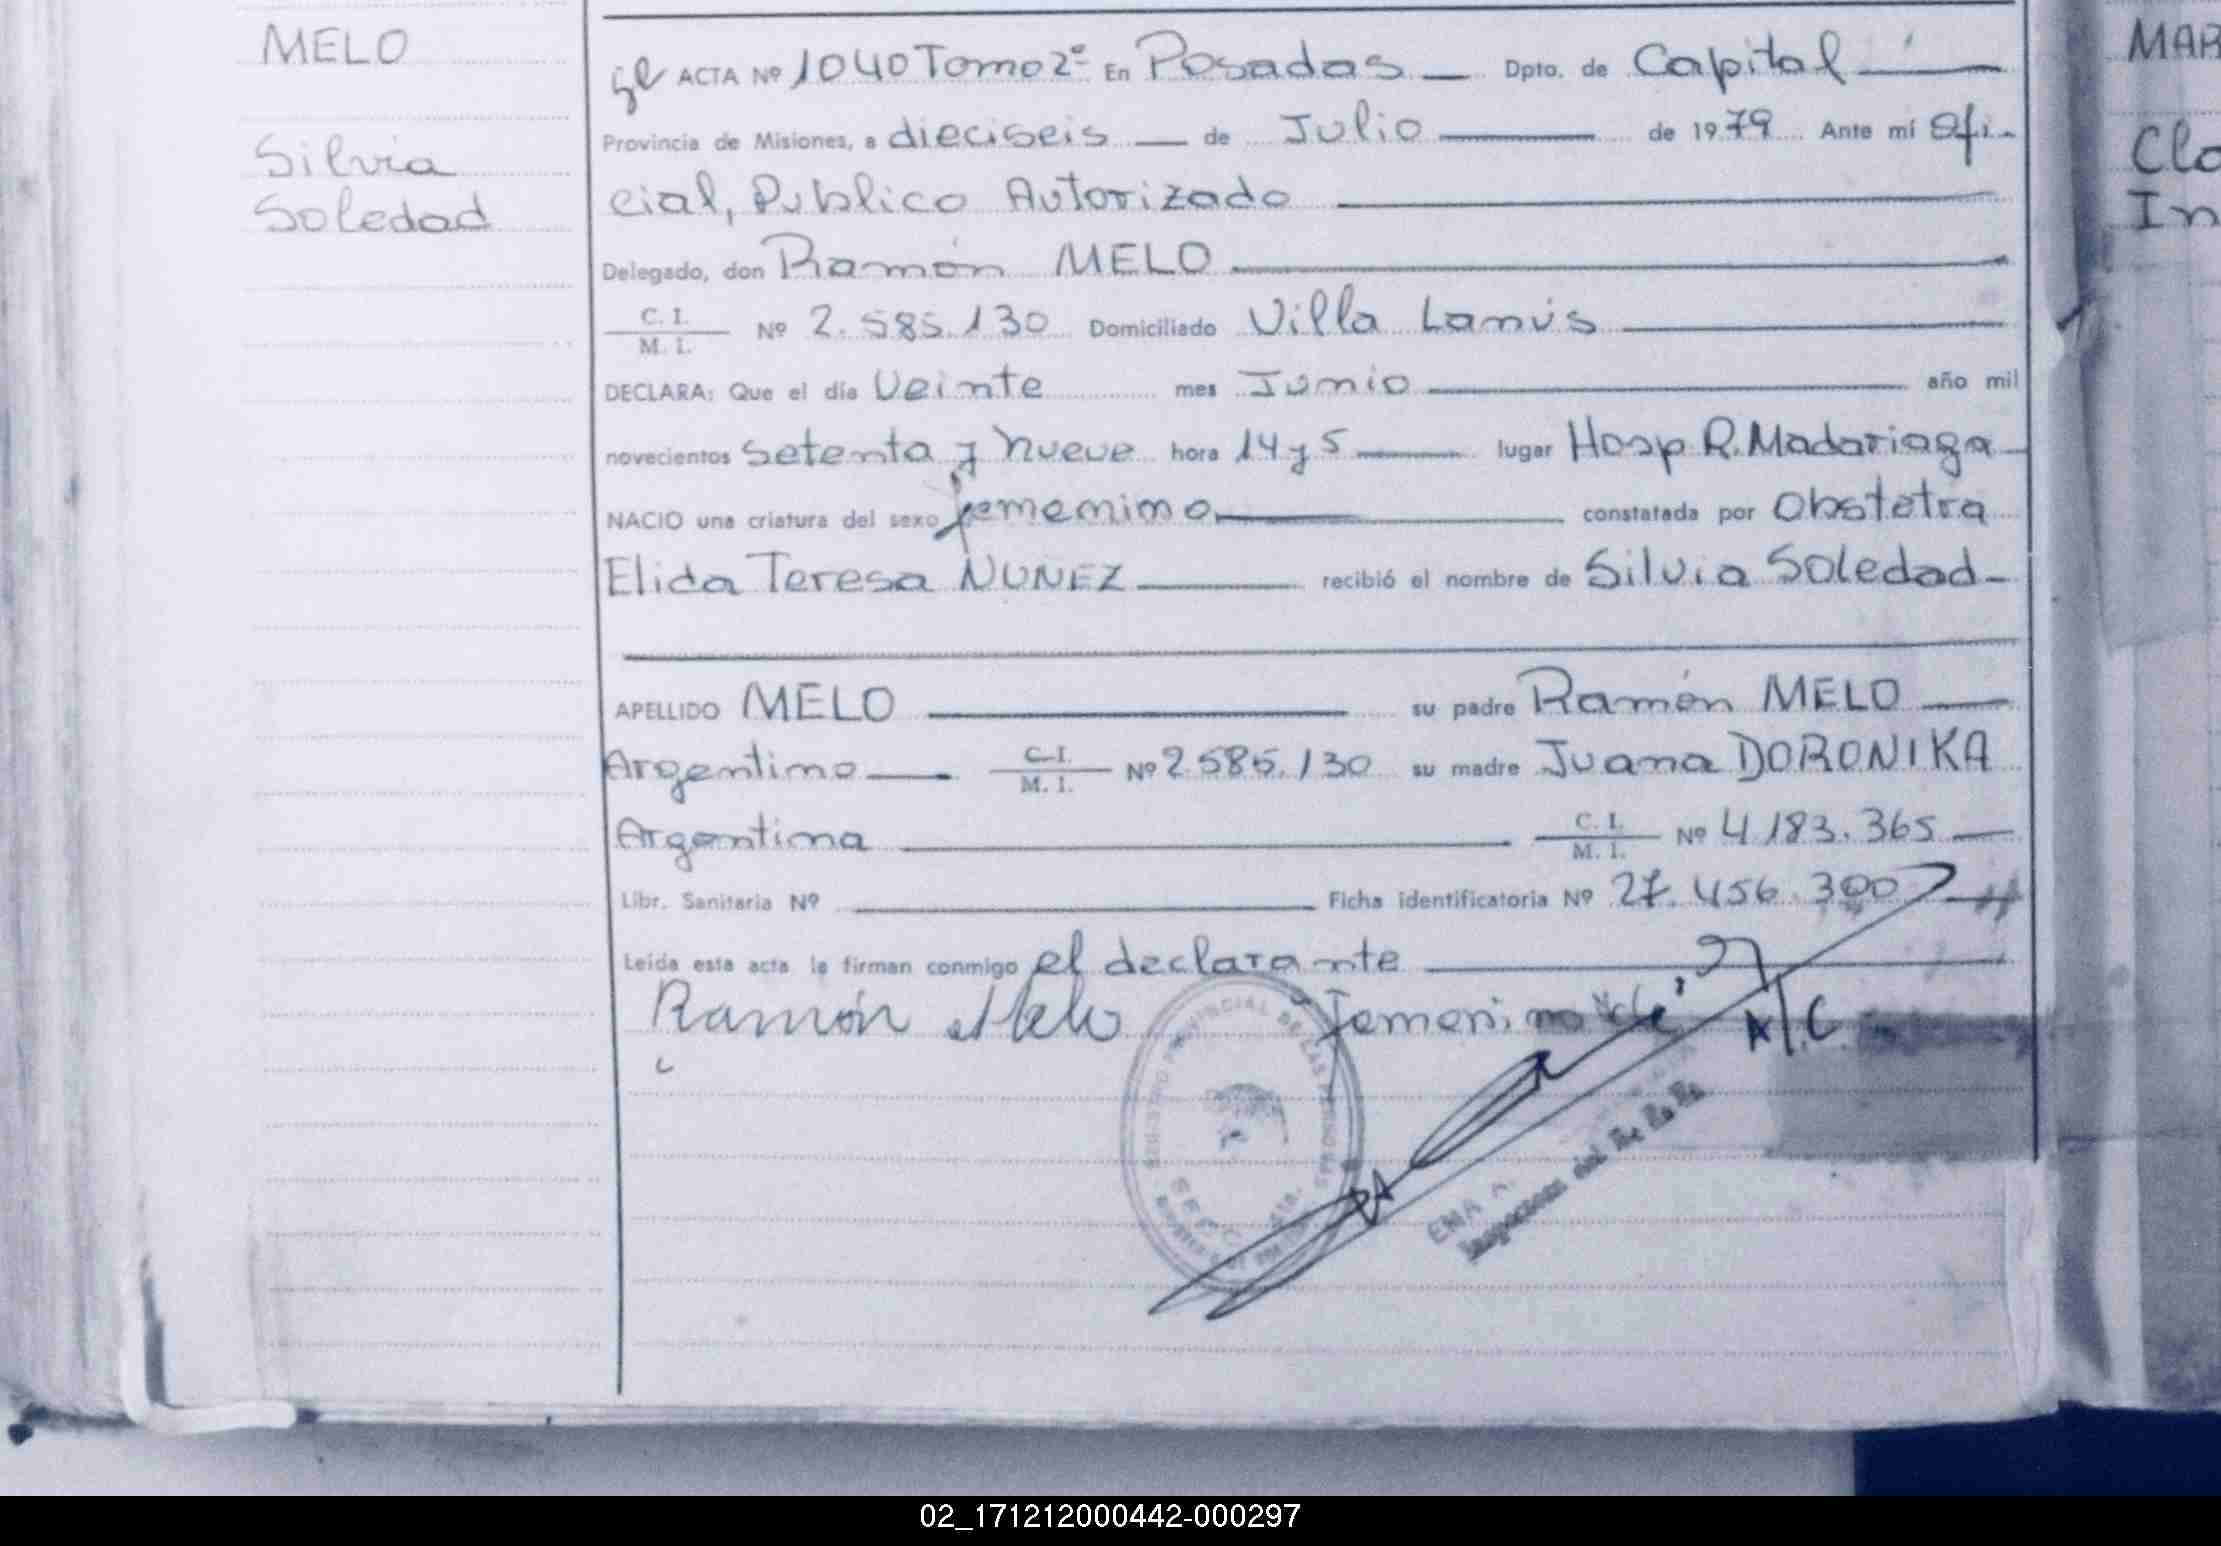 MELO
Silvia
Soledad
ACTA Nº 1040 Tomo 2º En Posadas Dpto. de Capital
Provincia de Misiones, a dieciseis de Julio de 1979 Ante mí Ofi-
cial, Publico Autorizado
Delegado, don Ramón MELO
C. I.
M. I. Nº 2.585.130 Domiciliado Villa Lanús
DECLARA: Que el día Veinte mes Junio año mil
novecientos setenta y nueve hora 14 y 5 lugar Hosp R. Madariaga
NACIO una criatura del sexo femenino constatada por Obstetra
Elida Teresa NUNEZ recibió el nombre de Silvia Soledad
APELLIDO MELO su padre Ramón MELO
Argentino C. I. M. I. Nº 2.585.130 su madre Juana DORONIKA
Argentina C. I. M. I. Nº 4.183.365
Libr. Sanitaria Nº Ficha identificatoria Nº 27.456.300
Leída esta acta la firman conmigo el declarante
Ramón Melo femenino Vale
PROVINCIAL DE LAS PERSONAS
SECC.
Inspectora del
MAR
Cla
In
02_171212000442-000297